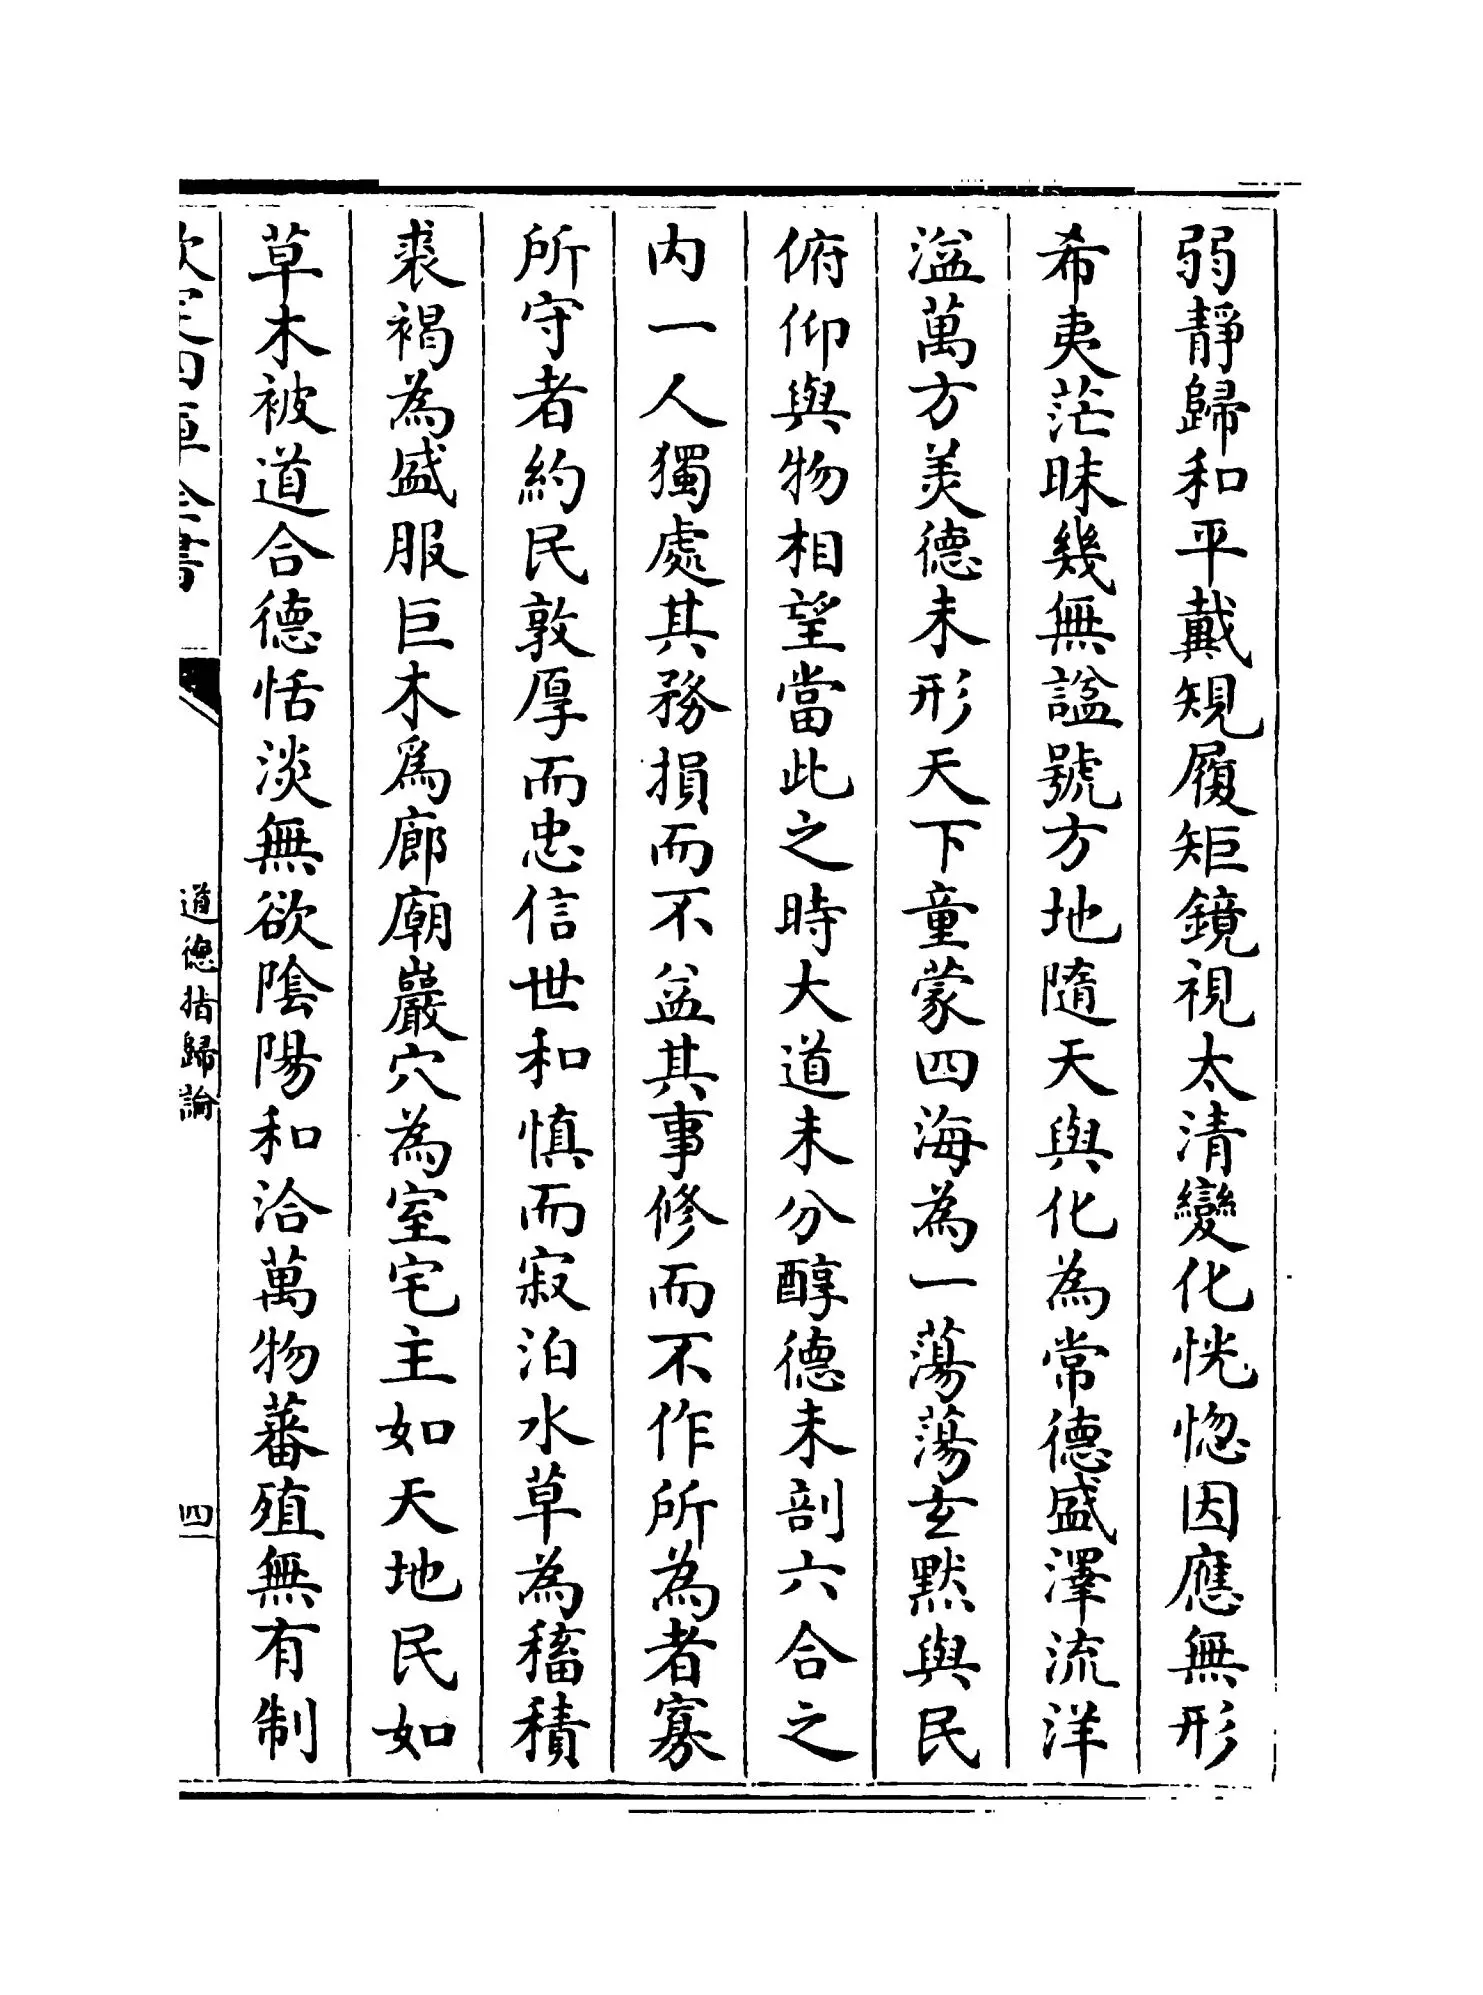 弱靜歸和平戴規履矩鏡視太清變化恍惚因應無形
希夷茫昧幾無諡號方地隨天與化為常德盛澤流洋
溢萬方美德未形天下童蒙四海為一蕩蕩玄默與民
俯仰與物相望當此之時大道未分醇德未剖六合之
内一人獨處其務損而不益其事修而不作所為者寡
所守者約民敦厚而忠信世和慎而寂泊水草為稸積
裘褐為盛服巨木爲廊廟巖穴為室宅主如天地民如
草木被道合德恬淡無欲陰陽和洽萬物蕃殖無有制
欽定四庫全書
道德指歸論
四